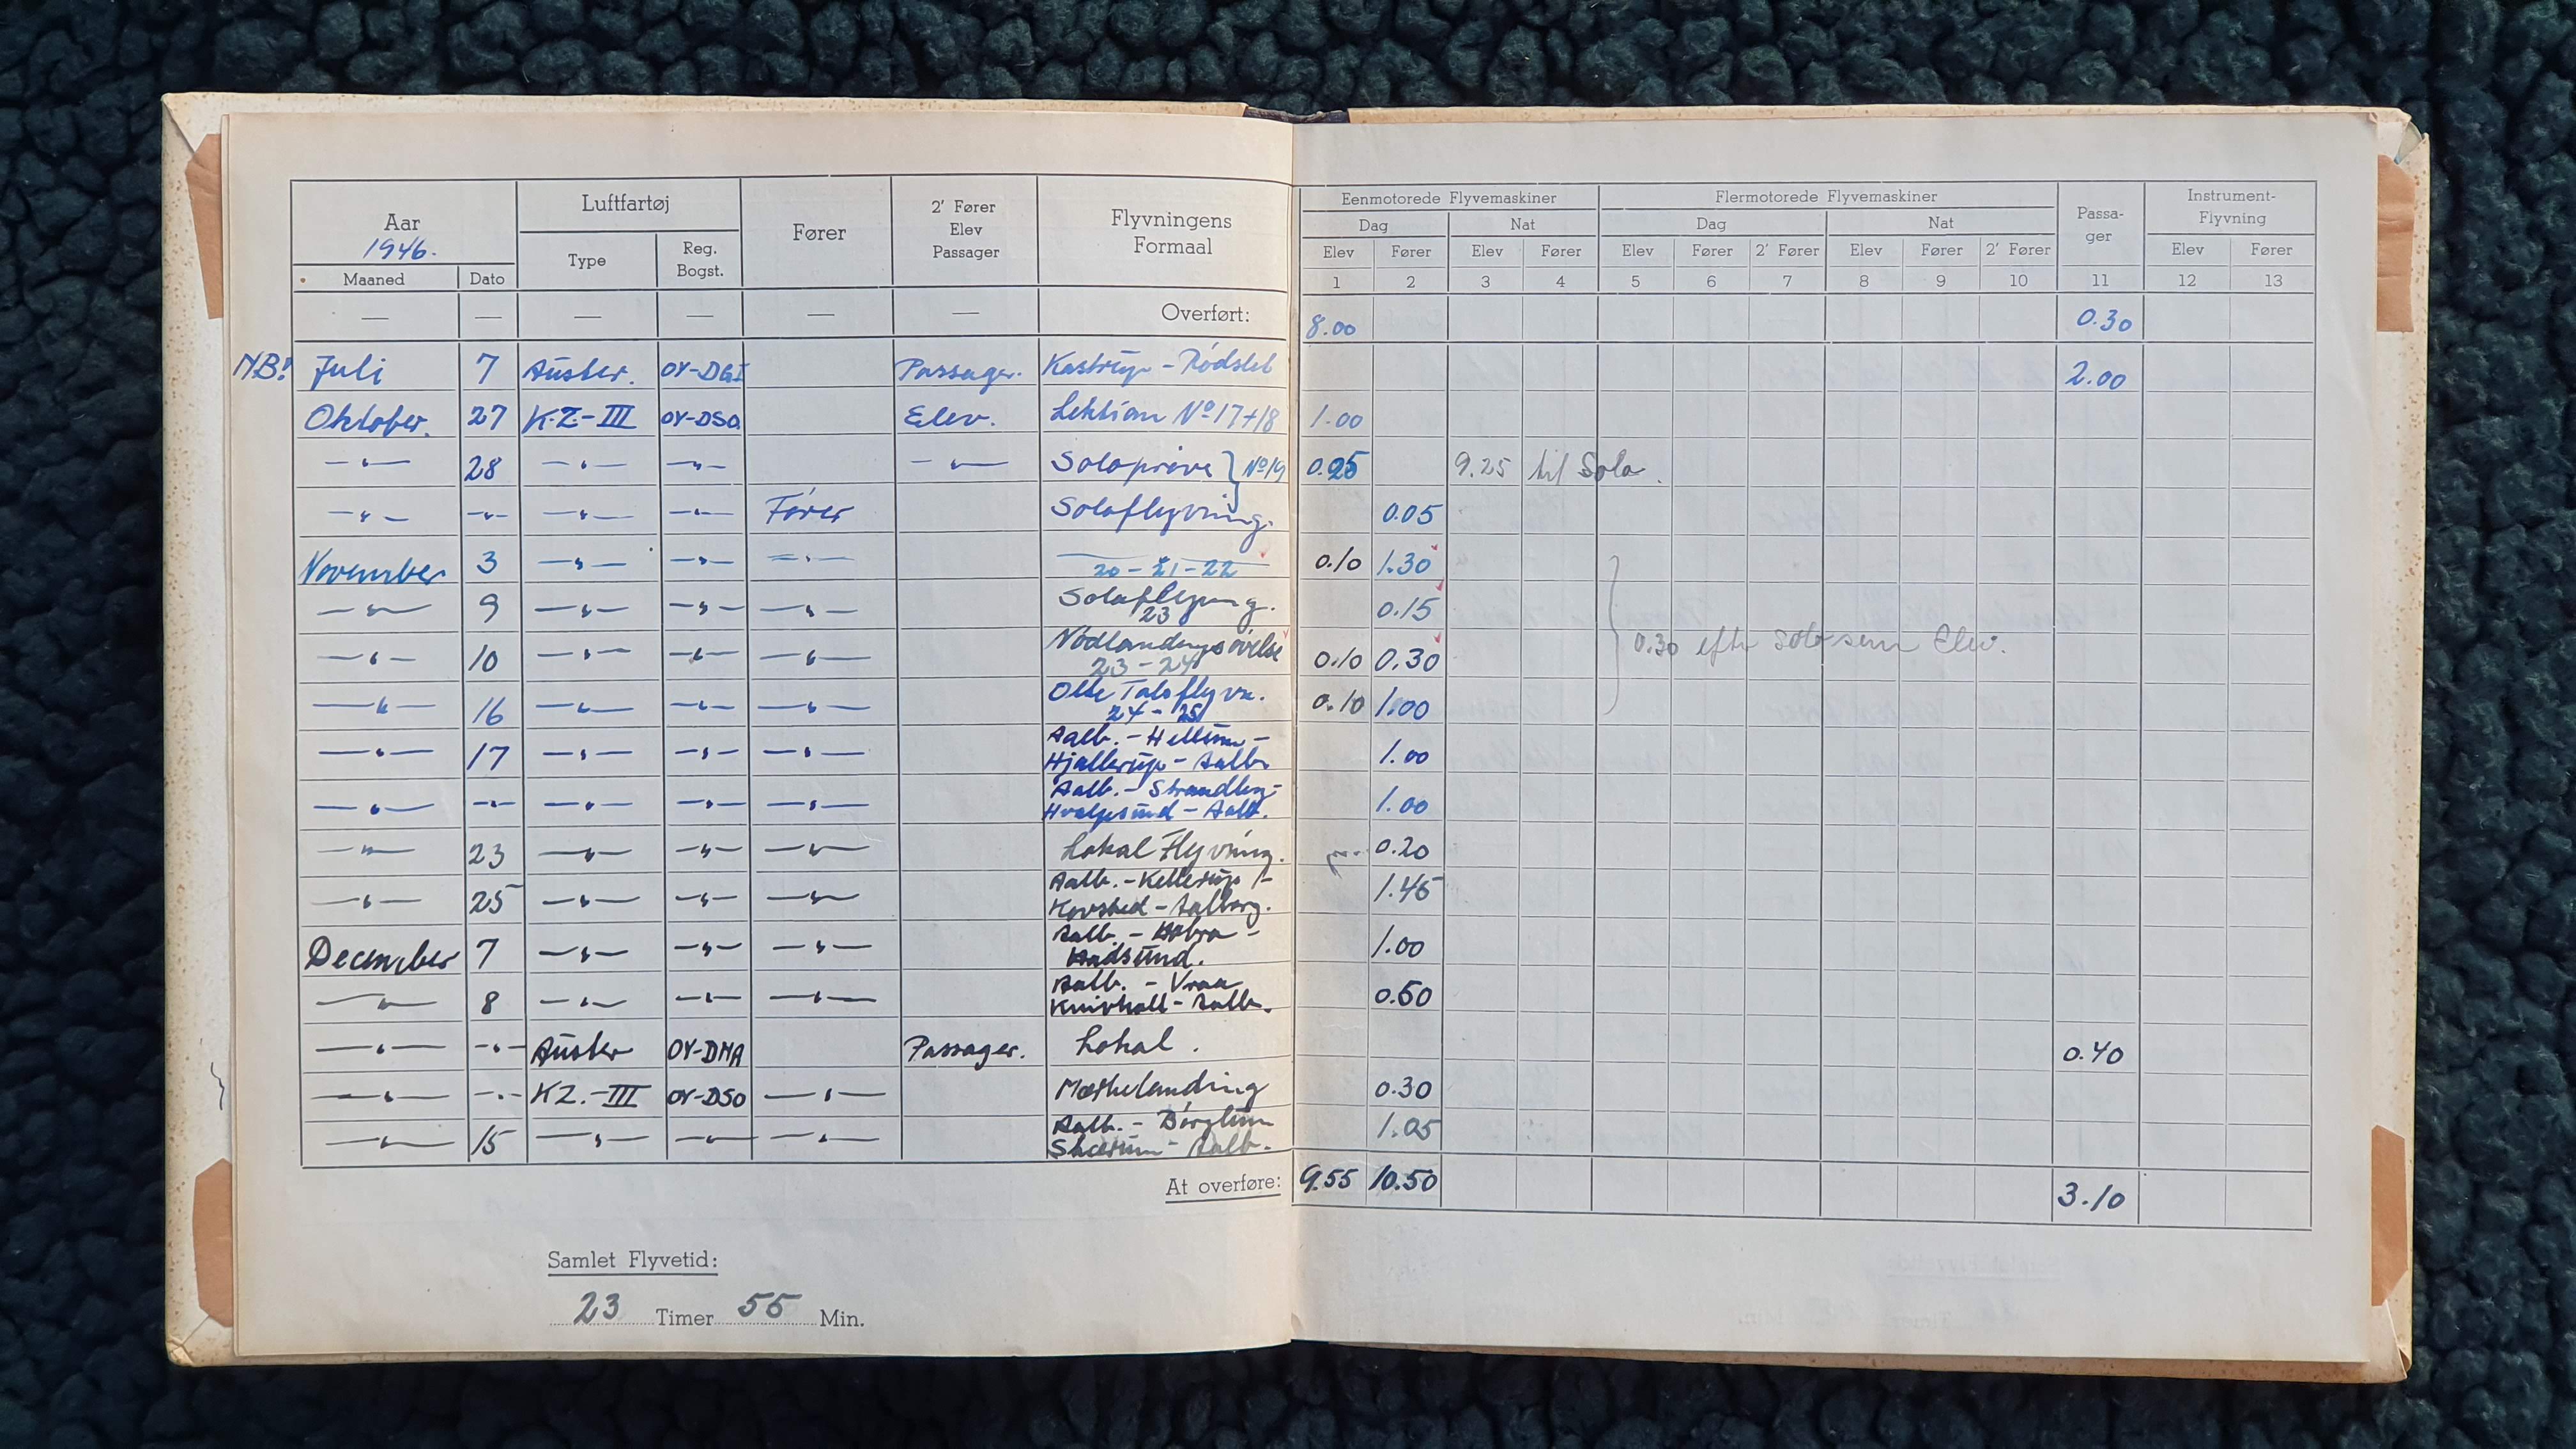 Aar
1946.
Maaned Dato
Luftfartøj
Type Reg. Bogst.
Fører
2' Fører
Elev
Passager
Flyvningens
Formaal
Eenmotorede Flyvemaskiner Flermotorede Flyvemaskiner
Dag Nat Dag Nat
Elev Fører Elev Fører Elev Fører 2' Fører Elev Fører 2' Fører
Passa-
ger
Instrument-
Flyvning
Elev Fører
1 2 3 4 5 6 7 8 9 10 11 12 13
— — — — — — Overført: 8.00 0.30
NB! Juli 7 Auster. OY-DGI Passager. Kastrup - Rødslet 2.00
Oktober. 27 K.Z-III OY-DSO Elev. Lektion № 17+18 1.00
—"— 28 —"— —"— —"— Soloprøve } №19 0.25 9.25 til Solo.
—"— —"— —"— —"— Fører Soloflyvning. 0.05
November 3 —"— —"— —"— —"— 0.10 1.30
20 - 21 - 22
—"— 9 —"— —"— —"— Soloflyvng. 0.15
23
—"— 10 —"— —"— —"— Nødlandingsøvelse 0.10 0.30 } 0.30 efter Solo som Elev.
23 - 24
—"— 16 —"— —"— —"— Otte Tals flyvn. 0.10 1.00
24 - 25
—"— 17 —"— —"— —"— Aalb. - Hellum - 1.00
Hjallerup - Aalb.
—"— —"— —"— —"— —"— Aalb. - Strandby - 1.00
Hvalpsund - Aalb.
—"— 23 —"— —"— —"— Lokal Flyvning. 0.20
—"— 25 —"— —"— —"— Aalb. - Kellerup - 1.45
Hovshed - Aalborg.
December 7 —"— —"— —"— Aalb. - Hobro - 1.00
Hadsund.
—"— 8 —"— —"— —"— Aalb. - Vraa 0.50
Knivholt - Aalb.
—"— —"— Auster OY-DNA Passager. Lokal. 0.40
—"— —"— KZ.-III OY-DSO —"— Mærkelanding 0.30
—"— 15 —"— —"— —"— Aalb. - Børglum 1.05
Skærum - Aalb.
At overføre: 9.55 10.50 3.10
Samlet Flyvetid:
23 Timer 55 Min.